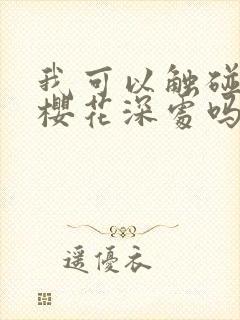 我可以触碰
樱花深处吗
遥優衣